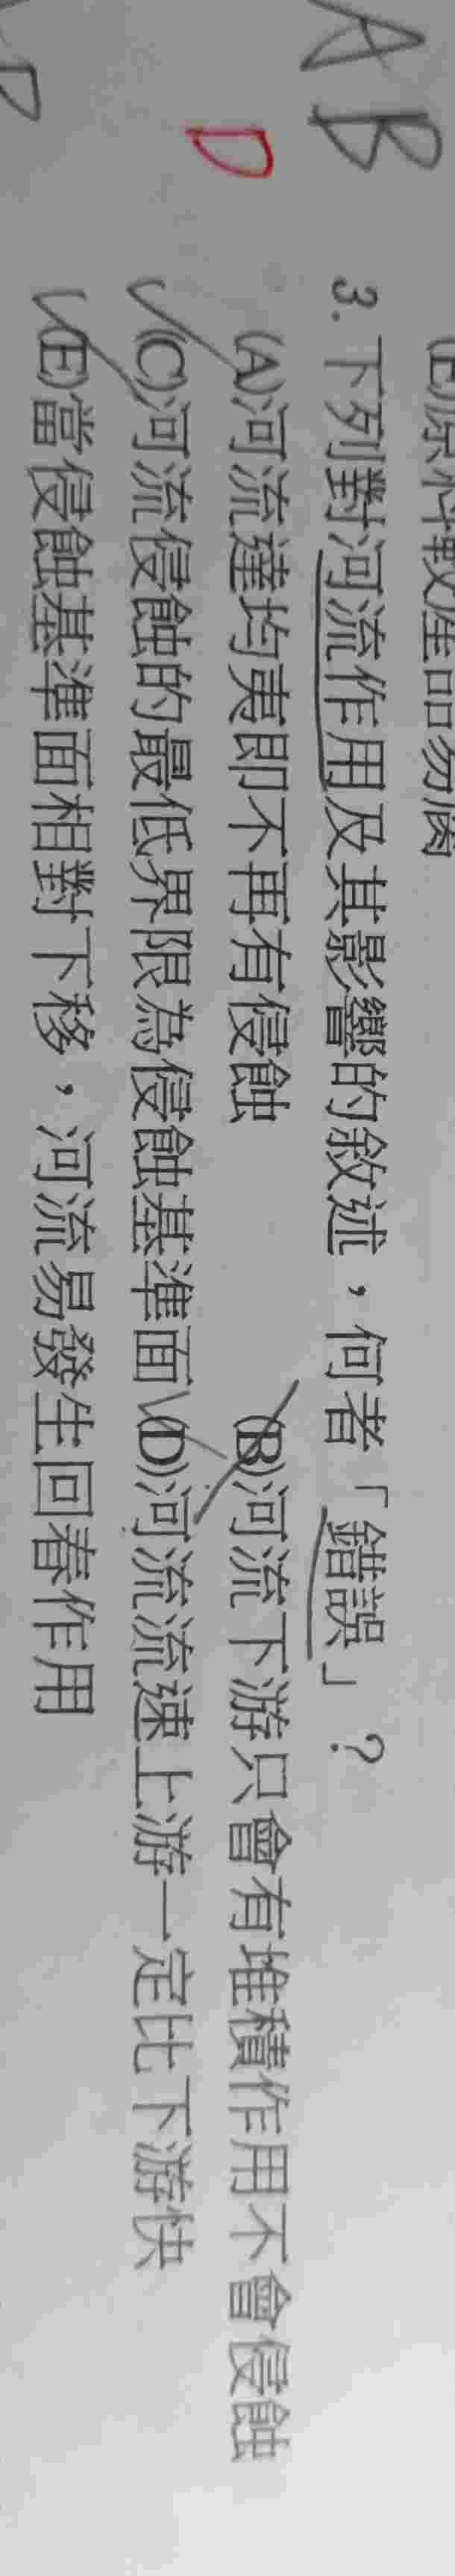 A B
D
3. 下列對河流作用及其影響的敘述，何者「錯誤」？
(A)河流達均夷即不再有侵蝕 (B)河流下游只會有堆積作用不會侵蝕
(C)河流侵蝕的最低界限為侵蝕基準面 (D)河流流速上游一定比下游快
(E)當侵蝕基準面相對下移，河流易發生回春作用